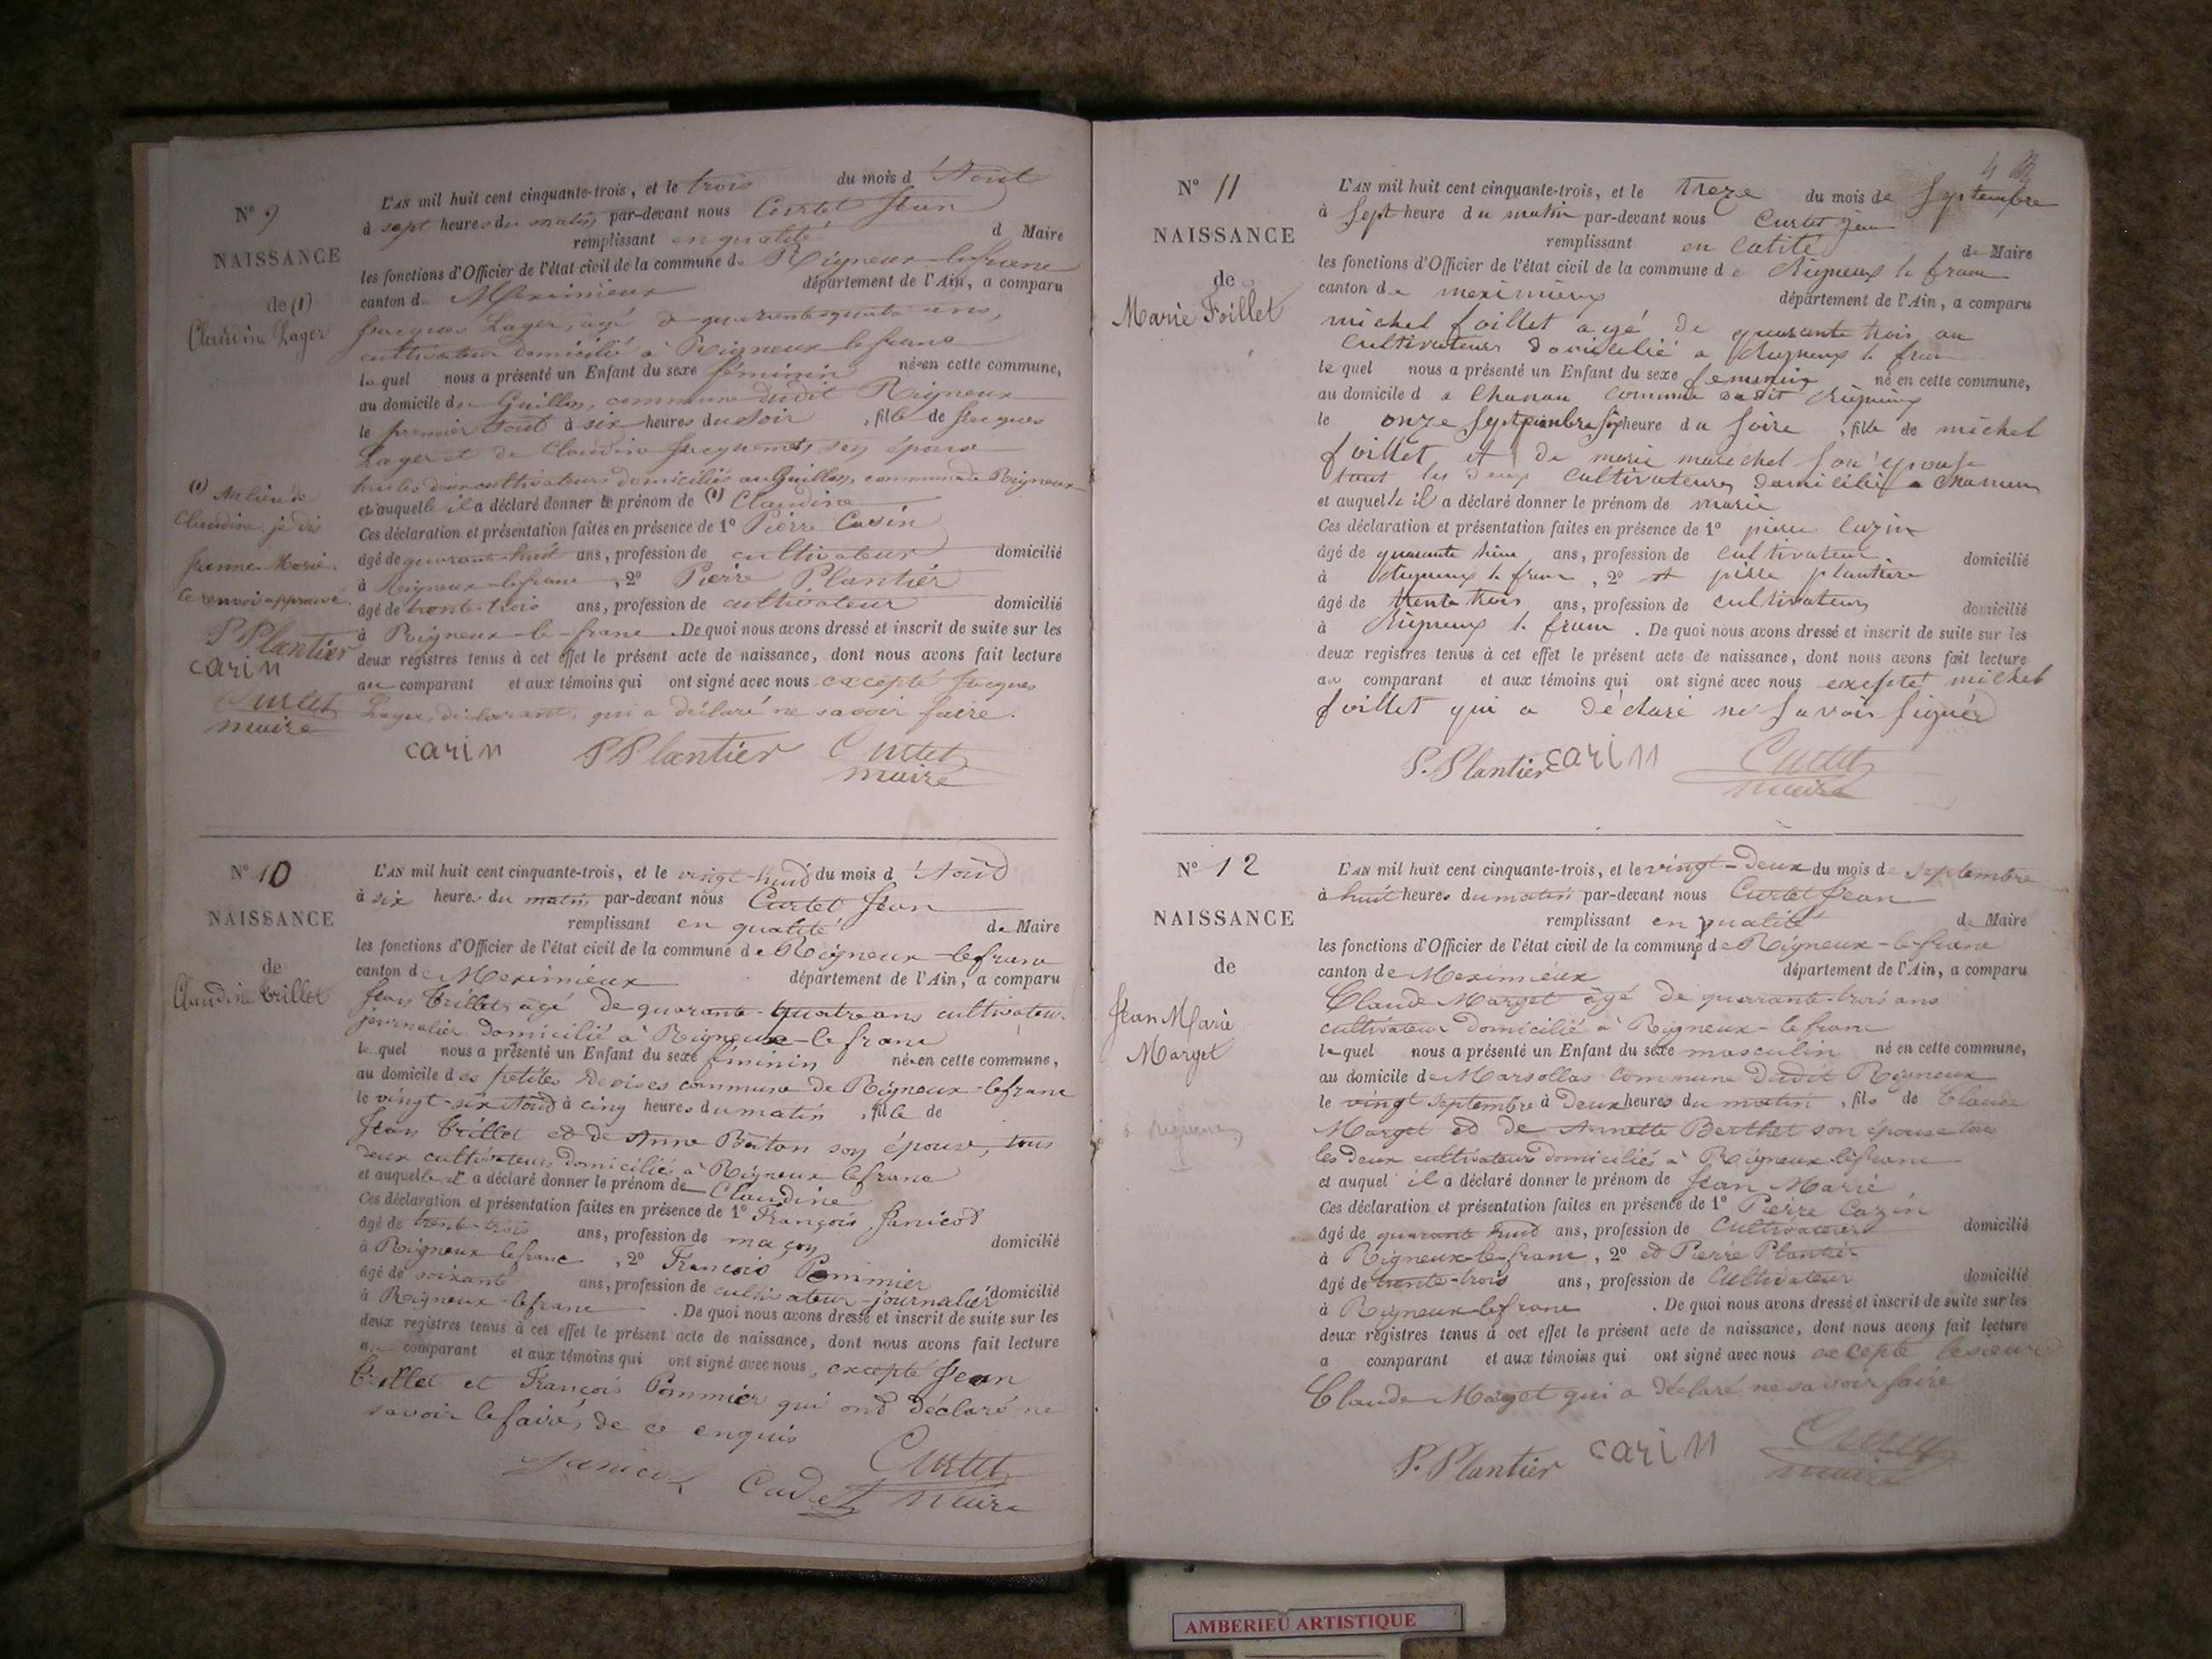 N° 9
NAISSANCE
de (1)
Claudine Lager
L'AN mil huit cent cinquante-trois, et le trois du mois d'Aout
à sept heures du matin par-devant nous Curtet Jean
remplissant en qualité d Maire
les fonctions d'Officier de l'état civil de la commune de Rigneux-le-franc
canton de Meximieux département de l'Ain, a comparu
Jacques Lager, âgé de quarante quatre ans,
cultivateur domicilié à Rigneux le franc
lequel nous a présenté un Enfant du sexe féminin née en cette commune,
au domicile du Guillon, commune dudit Rigneux
le premier Aout à six heures du soir, fille de Jacques
Lager et de Claudine Jacquemet, son épouse
tous les deux cultivateurs domiciliés au Guillon, commune de Rigneux
et auquelle il a déclaré donner le prénom de (1) Claudine
Ces déclaration et présentation faites en présence de 1° Pierre Casin
âgé de quarante-huit ans, profession de cultivateur domicilié
à Rigneux-le-franc, 2° Pierre Plantier
âgé de trente-trois ans, profession de cultivateur domicilié
à Rigneux-le-franc. De quoi nous avons dressé et inscrit de suite sur les
deux registres tenus à cet effet le présent acte de naissance, dont nous avons fait lecture
au comparant et aux témoins qui ont signé avec nous excepté Jacques
Lager, déclarant, qui a déclaré ne savoir faire.
carin P Plantier Curtet
maire
(1) Au lieu de
Claudine, je dis
Jeanne-Marie.
le renvoi approuvé
P Plantier
carin
Curtet
maire
N° 10
NAISSANCE
de
Claudine Trillet
L'AN mil huit cent cinquante-trois, et le vingt-huit du mois d'Aoûd
à six heures du matin par-devant nous Curtet Jean
remplissant en qualité de Maire
les fonctions d'Officier de l'état civil de la commune de Rigneux-le franc
canton de Meximieux département de l'Ain, a comparu
Jean Trillet, âgé de quarante-quatre ans cultivateur
journalier domicilié à Rigneux-le franc
lequel nous a présenté un Enfant du sexe féminin née en cette commune,
au domicile des petites Devises commune de Rigneux-le franc
le vingt-six Aoûd à cinq heures du matin, fille de
Jean Trillet et de Anne Berton son épouse, tous
deux cultivateurs domiciliés à Rigneux le franc
et auquelle il a déclaré donner le prénom de Claudine
Ces déclaration et présentation faites en présence de 1° François Janicod
âgé de trente-trois ans, profession de maçon domicilié
à Rigneux le franc, 2° François Pommier
âgé de soixante ans, profession de cultivateur-journalier domicilié
à Rigneux-le franc. De quoi nous avons dressé et inscrit de suite sur les
deux registres tenus à cet effet le présent acte de naissance, dont nous avons fait lecture
au comparant et aux témoins qui ont signé avec nous, excepté Jean
Trillet et François Pommier qui ond déclaré ne
savoir le faire, de ce enquis
Janicod Cadet Curtet
maire
N° 11
NAISSANCE
de
Marie Foillet
L'AN mil huit cent cinquante-trois, et le treze du mois de Septembre
à Sept heure du matin par-devant nous Curtet Jean
remplissant en catité de Maire
les fonctions d'Officier de l'état civil de la commune de Rigneux le franc
canton de meximieux département de l'Ain, a comparu
michel foillet agé de quarante trois an
Cultivateur domicilié a Rigneux le franc
lequel nous a présenté un Enfant du sexe femenin né en cette commune,
au domicile d a Chanau commune dudit Rigneux
le onze Septembre heure du Soire, fille de michel
foillet et de marie marechel Son épouse
tout les deux Cultivateurs domicilié a Chanau
et auquelle il a déclaré donner le prénom de marie
Ces déclaration et présentation faites en présence de 1° pierre Cazin
âgé de quarante ans, profession de cultivateur domicilié
à Rigneux le franc, 2° et pierre plantier
âgé de trente trois ans, profession de cultivateurs domicilié
à Rigneux le franc. De quoi nous avons dressé et inscrit de suite sur les
deux registres tenus à cet effet le présent acte de naissance, dont nous avons fait lecture
au comparant et aux témoins qui ont signé avec nous excepté michel
foillet qui a déclaré ne Savoir Signér
P. Plantier carin Curtet
maire
N° 12
NAISSANCE
de
Jean Marie
Marget
L'AN mil huit cent cinquante-trois, et le vingt-deux du mois de Septembre
à huit heures du matin par-devant nous Curtet Jean
remplissant en qualité de Maire
les fonctions d'Officier de l'état civil de la commune de Rigneux-le franc
canton de Meximieux département de l'Ain, a comparu
Claude Marget âgé de quarante-trois ans
cultivateur domicilié à Rigneux-le franc
lequel nous a présenté un Enfant du sexe masculin né en cette commune,
au domicile de Marsollas commune dudit Rigneux
le vingt Septembre à deux heures du matin, fils de Claude
Marget et de Annette Berthet son épouse tous
les deux cultivateurs domiciliés à Rigneux le franc
et auquel il a déclaré donner le prénom de Jean Marie
Ces déclaration et présentation faites en présence de 1° Pierre Cazin
âgé de quarante huit ans, profession de Cultivateurs domicilié
à Rigneux-le-franc, 2° et Pierre Plantier
âgé de trente-trois ans, profession de Cultivateur domicilié
à Rigneux-le franc. De quoi nous avons dressé et inscrit de suite sur les
deux registres tenus à cet effet le présent acte de naissance, dont nous avons fait lecture
a comparant et aux témoins qui ont signé avec nous excepté le sieur
Claude Marget qui a déclaré ne savoir faire
P. Plantier carin Curtet
maire
AMBERIEU ARTISTIQUE